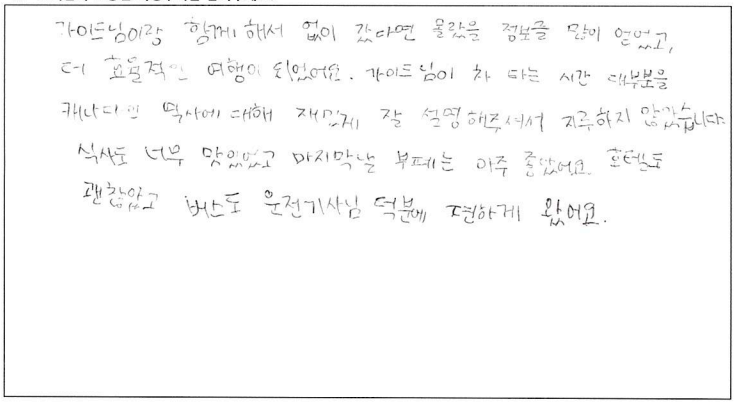 가이드님이랑 함께 해서 없이 갔다면 몰랐을 정보를 많이 얻었고,
더 효율적인 여행이 되었어요. 가이드님이 차 타는 시간 대부분을
캐나디언 역사에 대해 재밌게 잘 설명해주셔서 지루하지 않았습니다.
식사도 너무 맛있었고 마지막날 부페는 아주 좋았어요. 호텔도
괜찮았고 버스도 운전기사님 덕분에 편하게 왔어요.